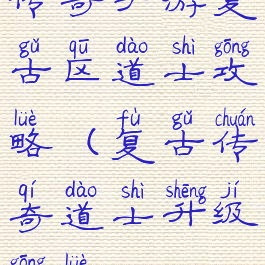 gǔ qū dào shì gōng
古区道士攻
lüè fù gǔ chuán
略(复古传
qí dào shì shēng jí
奇道士升级
gōng lüè